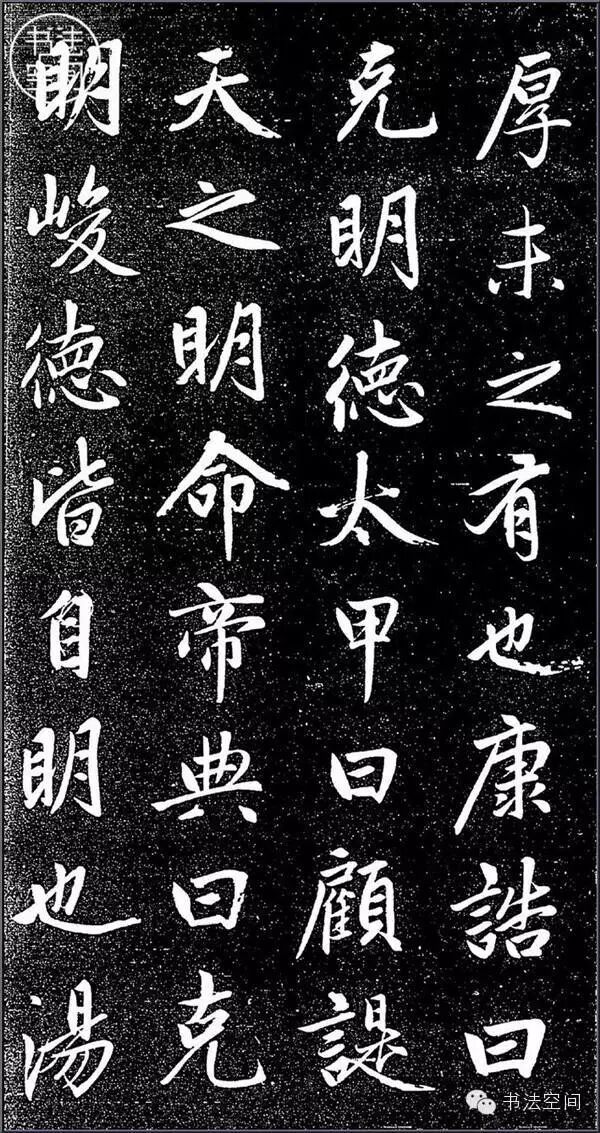 厚未之有也康誥曰
克明德太甲曰顧諟
天之明命帝典曰克
明峻德皆自明也湯
书法空间
书法空间